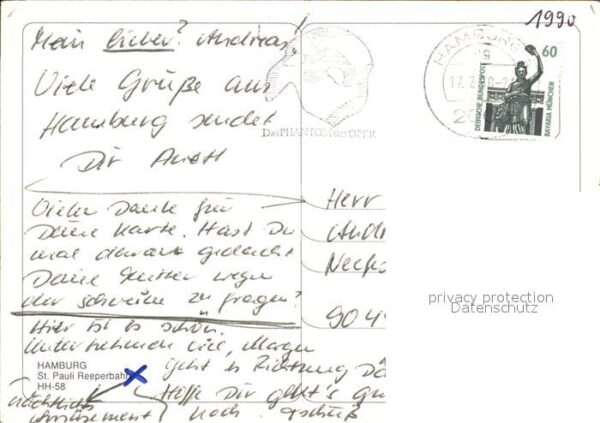 1990
Mein lieber? Andreas!
Viele Grüße aus
Hamburg sendet
Dir
Das PHANTOM der OPER
HAMBURG
17.
20
60
DEUTSCHE BUNDESPOST
BAVARIA MÜNCHEN
Vielen Danke für
Deine Karte. Hast Du
mal daran gedacht
Deine Mutter wegen
der Schweine zu fragen?
Hier ist es schön.
Unternehmen viel, Morgen
geht es Richtung Dä
Hoffe Dir geht's gu
noch. Tschüß
Herr
Andr
904
privacy protection
Datenschutz
HAMBURG
St. Pauli Reeperbahn
HH-58
nächtliches